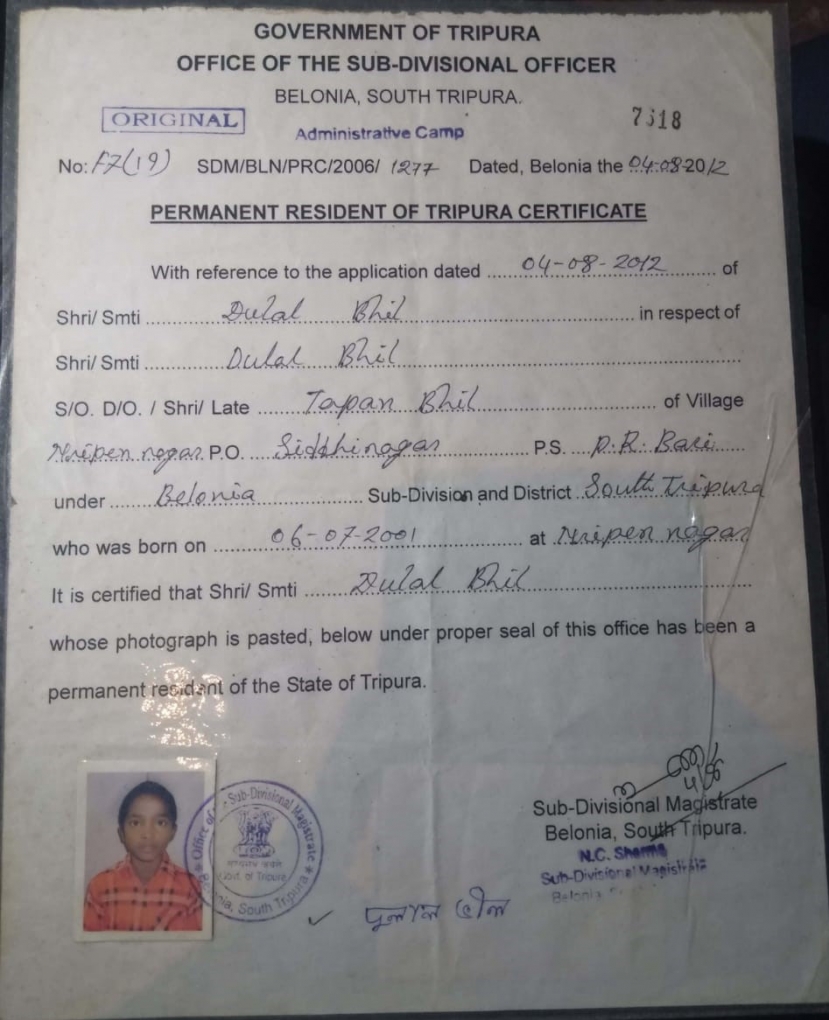 GOVERNMENT OF TRIPURA
OFFICE OF THE SUB-DIVISIONAL OFFICER
BELONIA, SOUTH TRIPURA.
ORIGINAL
7618
Administrative Camp
No: F7(19) SDM/BLN/PRC/2006/ 1277 Dated, Belonia the 04-08-2012
PERMANENT RESIDENT OF TRIPURA CERTIFICATE
With reference to the application dated 04-08-2012 of
Shri/ Smti Dulal Bhil in respect of
Shri/ Smti Dulal Bhil
S/O. D/O. / Shri/ Late Tapan Bhil of Village
Nripen nagar P.O. Siddhinagar P.S. P.R. Bari
under Belonia Sub-Division and District South Tripura
who was born on 06-07-2001 at Nripen nagar
It is certified that Shri/ Smti Dulal Bhil
whose photograph is pasted, below under proper seal of this office has been a
permanent resident of the State of Tripura.
Office of the Sub-Divisional Magistrate
Govt. of Tripura
Belonia, South Tripura
Sub-Divisional Magistrate
Belonia, South Tripura.
N.C. Sharma
Sub-Divisional Magistrate
Belonia
দুলাল ভীল